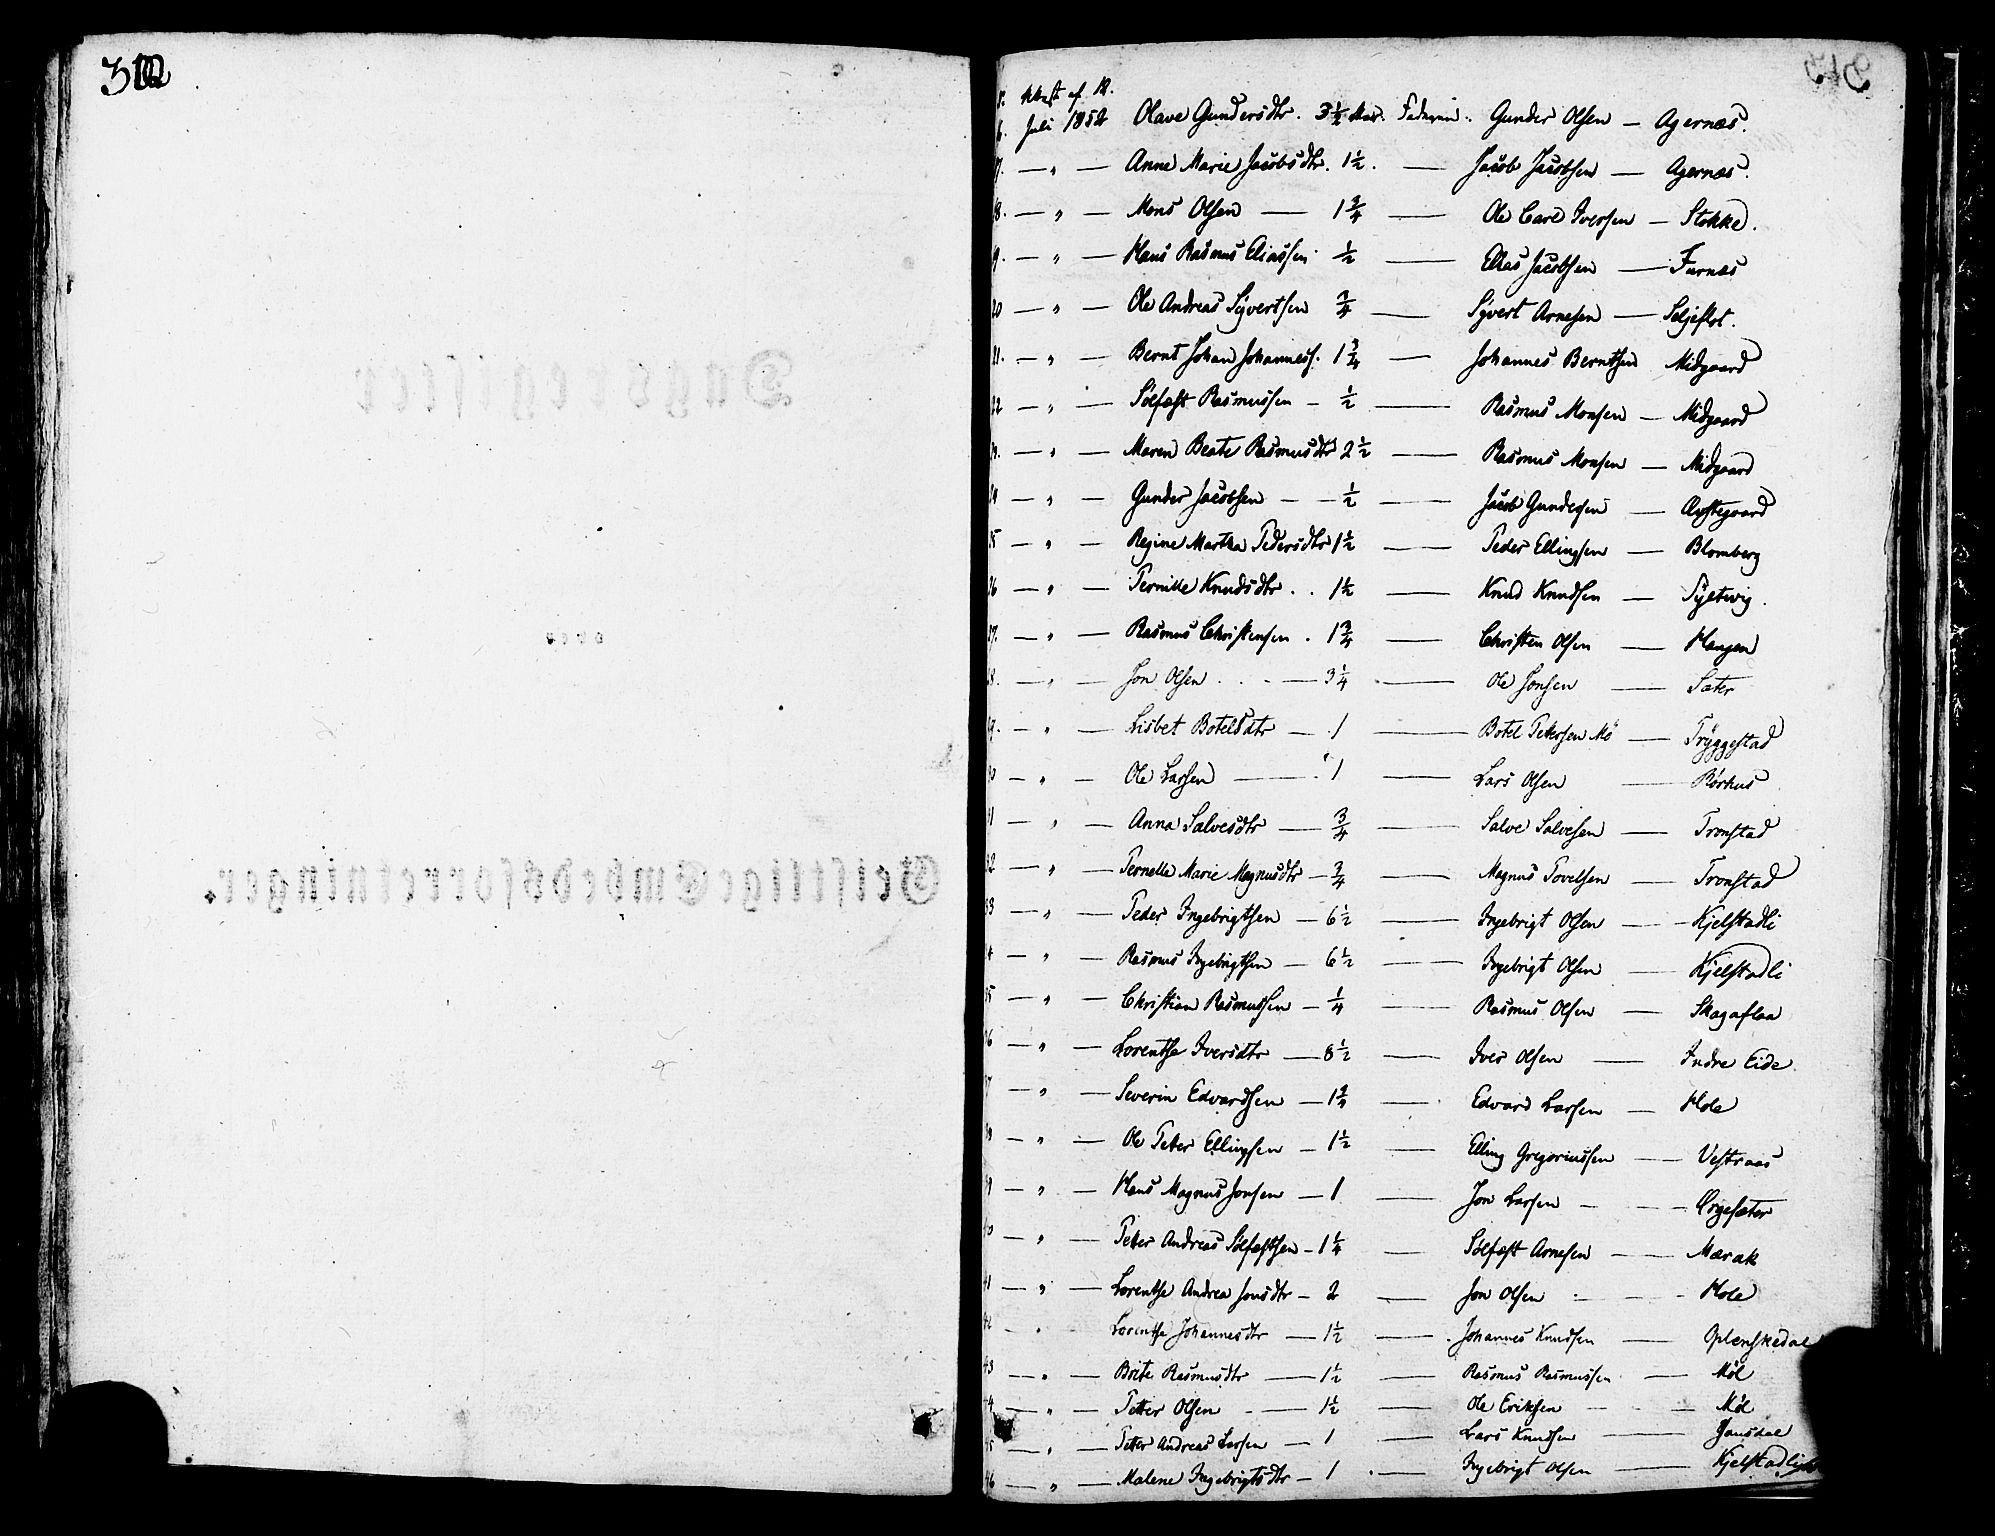 312
Juli 1852 Olave Gundersdtr. 3½ Faderen: Gunder Olsen — Agernæs.
7. — " — Anne Marie Jacobsdtr. 1½. — Jacob Jacobsen — Agernæs.
8. — " — Mons Olsen — 1¾ — Ole Carl Iversen — Stokke.
9. — " — Hans Rasmus Eliassen ½ — Elias Jacobsen — Furnæs
20 — " — Ole Andreas Syvertsen ¾ — Syvert Arnesen — Seljeflot.
21. — " — Bernt Johan Johanness. 1¾ — Johannes Berntsen Midgaard
22 — " — Sølfæst Rasmussen — ½ — Rasmus Monsen — Midgaard
— " — Maren Beate Rasmusdtr 2½ — Rasmus Monsen — Midgaard
24 — " — Gunder Jacobsen — ½ — Jacob Gundersen — Øvstegaard
25 — " — Regine Martha Pedersdtr 1½ — Peder Ellingsen — Blomberg
26 — " — Pernille Knudsdtr . . 1½ — Knud Knudsen — Syltevig.
27. — " — Rasmus Christensen . 1¾ — Christen Olsen — Haugen
28. — " — Jon Olsen . . . — 3¼ — Ole Jonsen — Sæter
29. — " — Lisbet Botelsdtr — 1 — Botel Petersen Mø — Tryggestad
30 — " — Ole Larsen — 1 — Lars Olsen — Rørhus
31 — " — Anna Salvesdtr — ¾ — Salve Salvesen — Tronstad
32 — " — Pernelle Marie Magnusdtr — ¾ — Magnus Povelsen — Tronstad
33 — " — Peder Ingebrigtsen — 6½ — Ingebrigt Olsen — Kjelstadli
4 — " — Rasmus Ingebrigtsen — 6½ — Ingebrigt Olsen — Kjelstadli
35 — " — Christian Rasmussen — ¼ — Rasmus Olsen — Skagaflaa
36 — " — Lorentse Iversdtr — 8½ — Iver Olsen — Indre Eide
37 — " — Severin Edvardsen — 1¾ — Edvard Larsen — Hole
38 — " — Ole Petter Ellingsen — 1½ — Elling Gregoriussen — Vestraas
39 — " — Hans Magnus Jonsen — 1 — Jon Larsen — Ørgesæter
40 — " — Petter Andreas Sølfæstsen — 1¼ — Sølfæst Arnesen — Mærak
41 — " — Lorentse Andrea Jonsdtr — 2 — Jon Olsen — Hole
42 — " Lorentse Johannesdtr — 1½ — Johannes Knudsen — Oplenskedal
43 — " — Brite Rasmusdtr — 1½ — Rasmus Rasmussen — Møl
44 — " — Petter Olsen — 1½ — Ole Eriksen — Møl
45 — " — Petter Andreas Larsen — 1 — Lars Knudsen — Gausdal
46 — " — Malene Ingebrigtsdtr — 1 — Ingebrigt Olsen — Kjelstadli